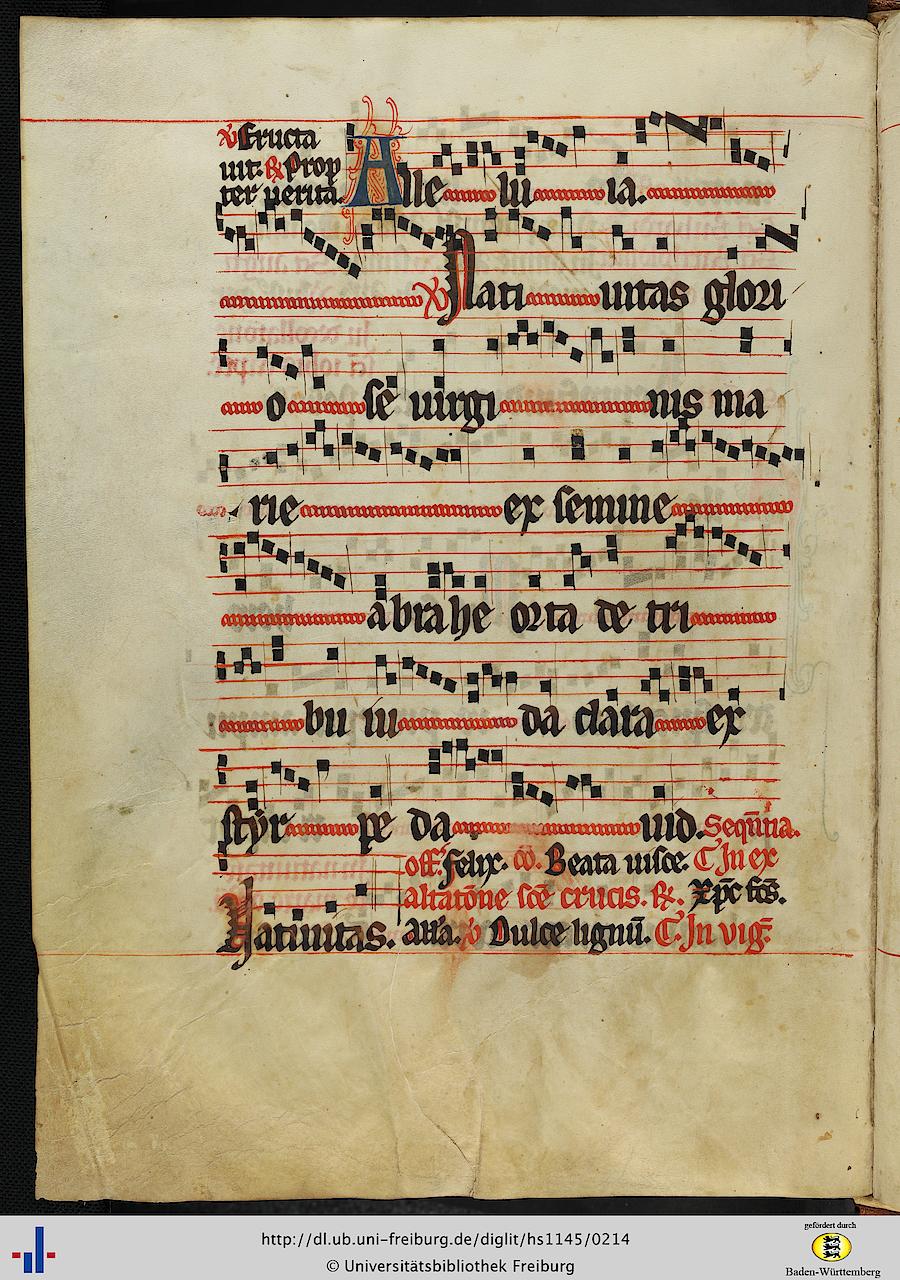 ℣ Eructa
uit. ℟ Prop
ter uerita.
Alle lu ia.
℣ Nati uitas glori
o se uirgi nis ma
rie ex semine
abrahe orta de tri
bu iu da clara ex
styr pe da uid. Sequ̅tia.
off. Felix. co̅. Beata uisce. In ex
altatōne sce̅ crucis. ℟. Xp̅c fcs̅.
Natiuitas. All'a. ℣ Dulce lignu̅. In vig.
http://dl.ub.uni-freiburg.de/diglit/hs1145/0214
© Universitätsbibliothek Freiburg
gefördert durch
Baden-Württemberg